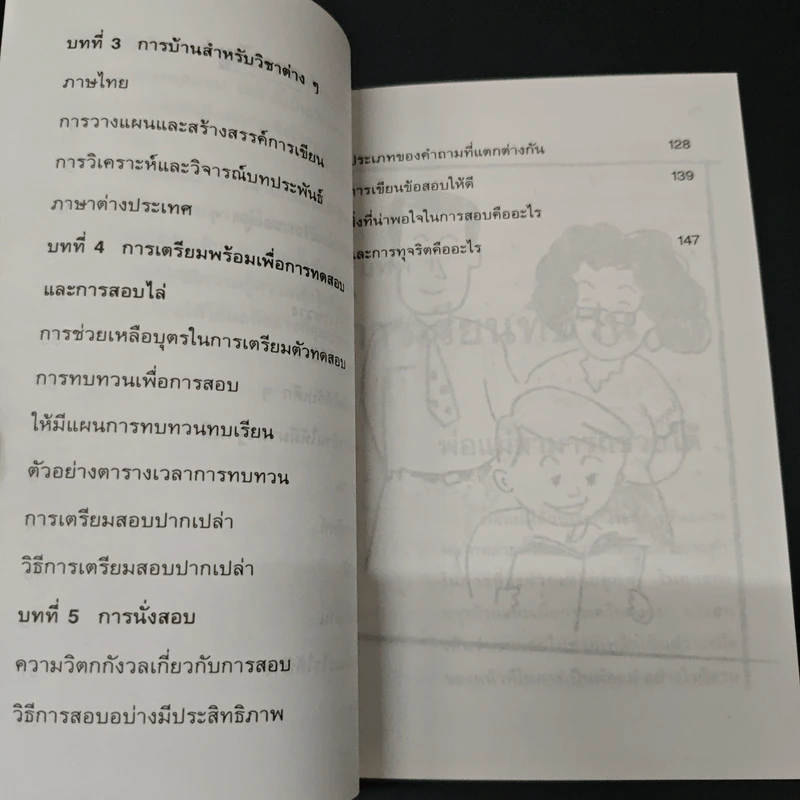 บทที่ 3 การบ้านสำหรับวิชาต่าง ๆ
ภาษาไทย
การวางแผนและสร้างสรรค์การเขียน
การวิเคราะห์และวิจารณ์บทประพันธ์
ภาษาต่างประเทศ
บทที่ 4 การเตรียมพร้อมเพื่อการทดสอบ
และการสอบไล่
การช่วยเหลือบุตรในการเตรียมตัวทดสอบ
การทบทวนเพื่อการสอบ
ให้มีแผนการทบทวนทบเรียน
ตัวอย่างตารางเวลาการทบทวน
การเตรียมสอบปากเปล่า
วิธีการเตรียมสอบปากเปล่า
บทที่ 5 การนั่งสอบ
ความวิตกกังวลเกี่ยวกับการสอบ
วิธีการสอบอบ่างมีประสิทธิภาพ
ประเภทของคำถามที่แตกต่างกัน 128
การเขียนข้อสอบให้ดี 139
สิ่งที่น่าพอใจในการสอบคืออะไร
และการทุจริตคืออะไร 147